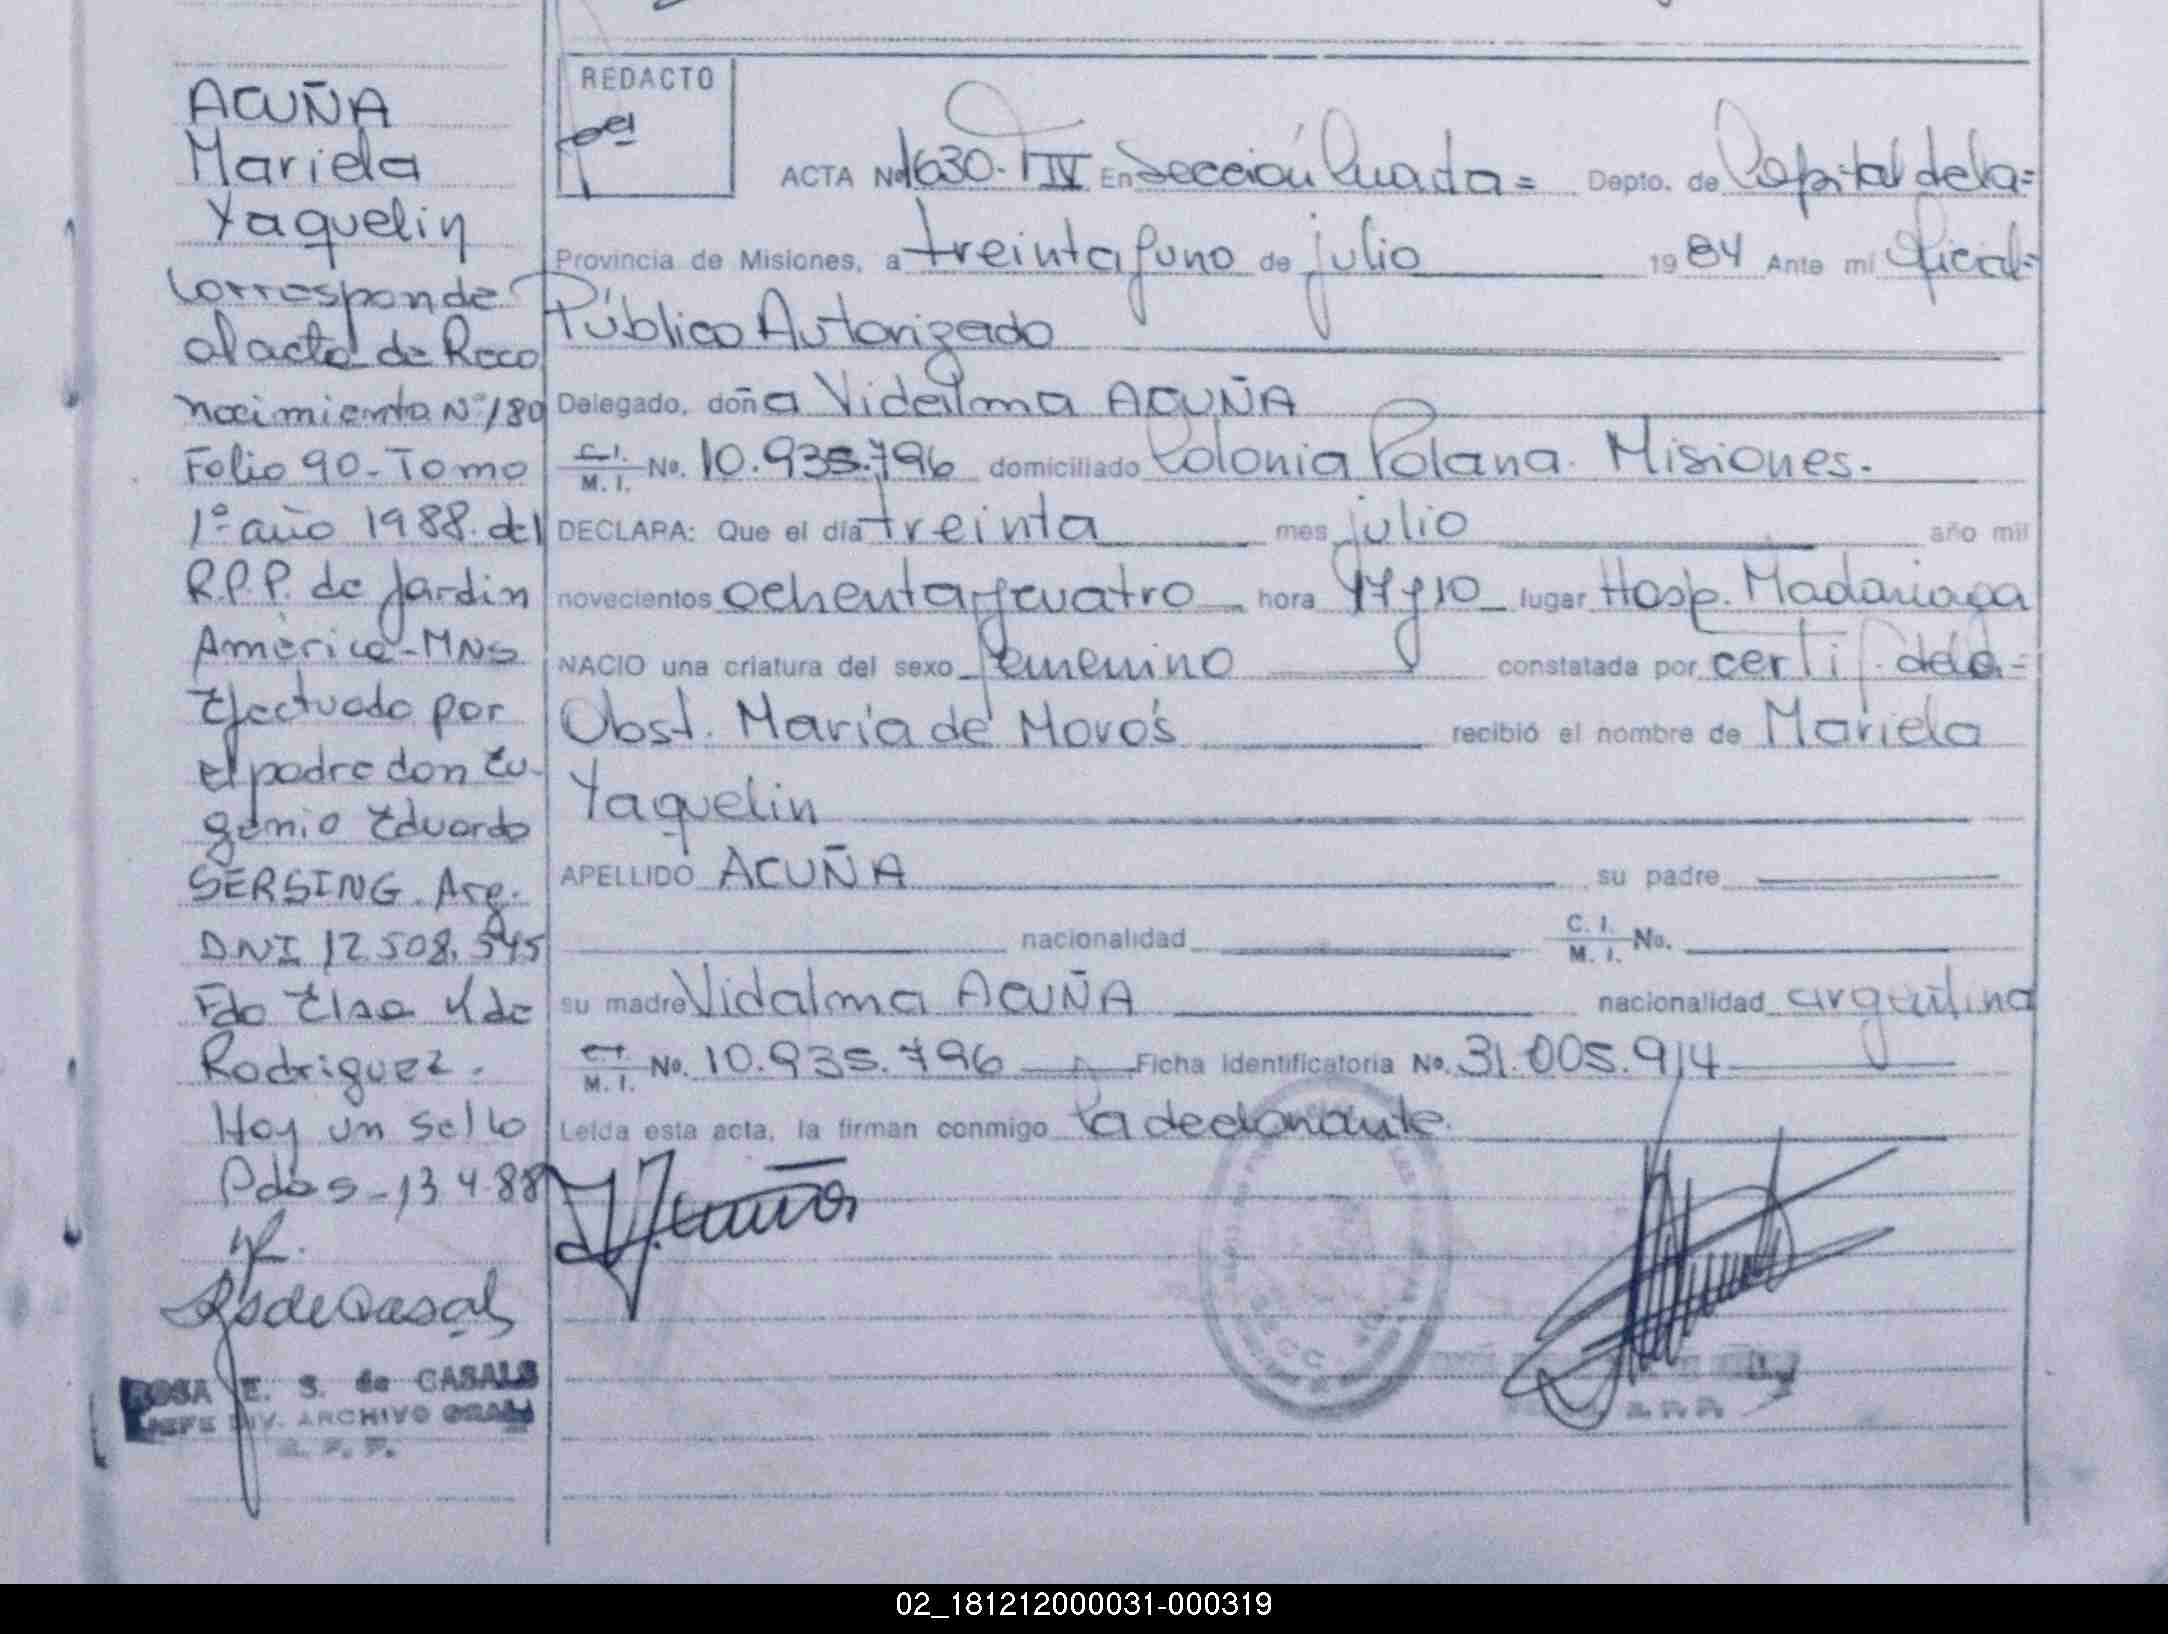 ACUÑA
Mariela
Yaquelin
Corresponde
al acta de Reco
nocimiento Nº 180
Folio 90-Tomo
1º año 1988. del
R.P.P. de Jardin
América-MNS
Efectuado por
el padre don Eu-
genio Eduardo
SERSING. Arg.
DNI 12.508.545
Fdo Elsa K de
Rodriguez.
Hay un sello
Pdas-13 4 88
ROSA E. S. de CASALS
JEFE DIV. ARCHIVO GRAL
R. P. P.
REDACTO
ACTA Nº 1630-TIV En Sección Cuarta= Depto. de Capital de la=
Provincia de Misiones, a treinta y uno de julio 1984 Ante mí Oficial=
Público Autorizado
Delegado, doña Vidalma ACUÑA
C.I. M.I. No. 10.935.796 domiciliado Colonia Polana. Misiones.
DECLARA: Que el día treinta mes julio año mil
novecientos ochenta y cuatro hora 17 y 10 lugar Hosp. Madariaga
NACIO una criatura del sexo femenino constatada por certif. de la=
Obst. María de recibió el nombre de Mariela
Yaquelin
APELLIDO ACUÑA su padre
nacionalidad C.I. M.I. No.
su madre Vidalma ACUÑA nacionalidad argentina
C.I. M.I. No. 10.935.796 Ficha identificatoria No. 31.005.914
Leída esta acta, la firman conmigo la declarante.
02_181212000031-000319